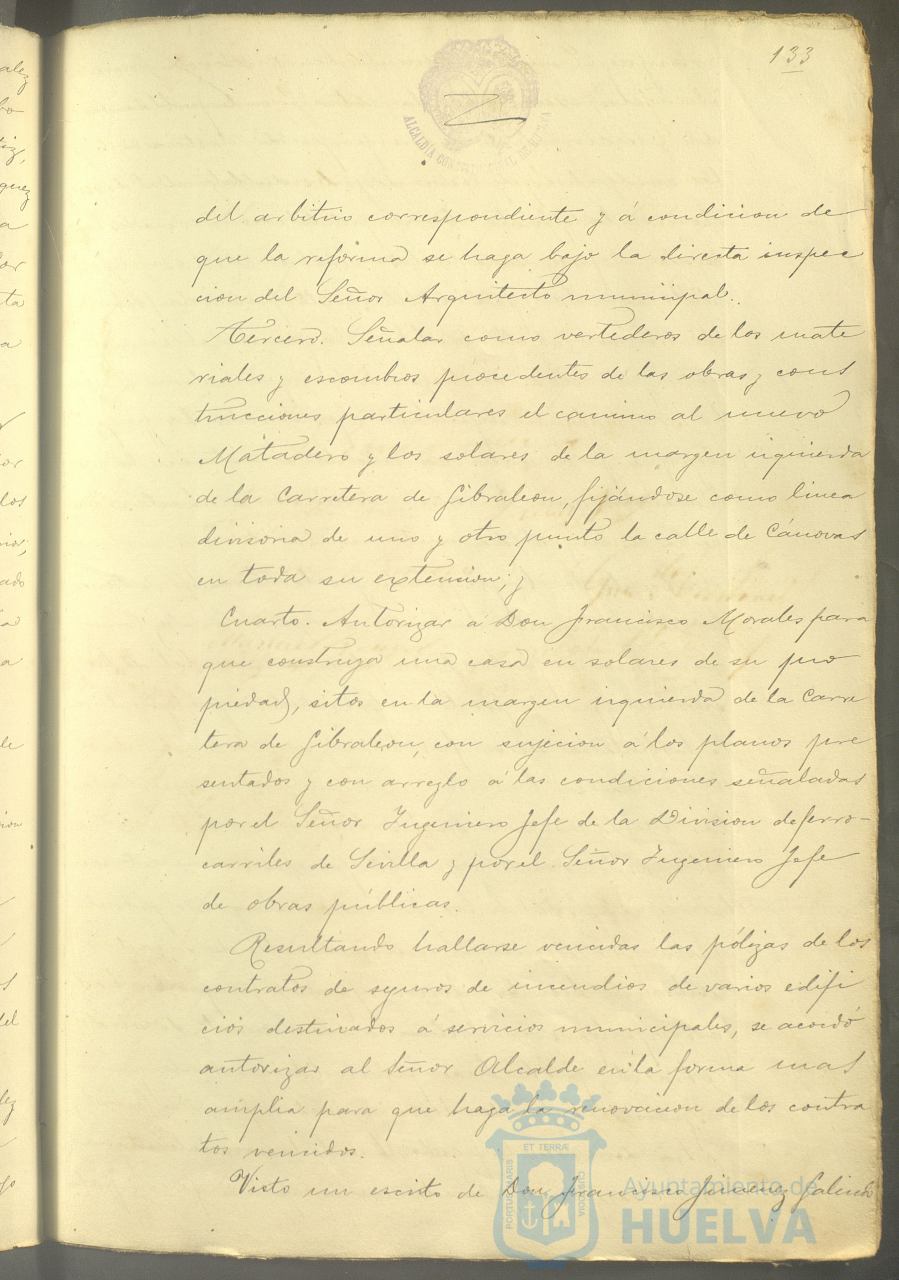 133
ALCALDIA CONSTITUCIONAL DE HUELVA
del arbitrio correspondiente y á condicion de
que la reforma se haga bajo la directa inspec
cion del Señor Arquitecto municipal.
Tercero. Señalar como vertederos de los mate
riales y escombros procedentes de las obras y cons
trucciones particulares el camino al nuevo
Matadero y los solares de la margen izquierda
de la Carretera de Gibraleon, fijándose como linea
divisoria de uno y otro punto la calle de Cánovas
en toda su extension; y
Cuarto. Autorizar á Don Francisco Morales para
que construya una casa en solares de su pro
piedad, sitos en la margen izquierda de la Carre
tera de Gibraleon, con sujecion á los planos pre
sentados y con arreglo á las condiciones señaladas
por el Señor Ingeniero Jefe de la Division de ferro-
carriles de Sevilla y por el Señor Ingeniero Jefe
de obras públicas.
Resultando hallarse vencidas las pólizas de los
contratos de seguros de incendios de varios edifi
cios destinados á servicios municipales, se acordó
autorizar al Señor Alcalde en la forma mas
amplia para que haga la renovacion de los contra
tos vencidos.
Visto un escrito de Don Francisco Jimenez Galindo
PORTUS MARIS
ET TERRÆ
CUSTODIA
Ayuntamiento de
HUELVA